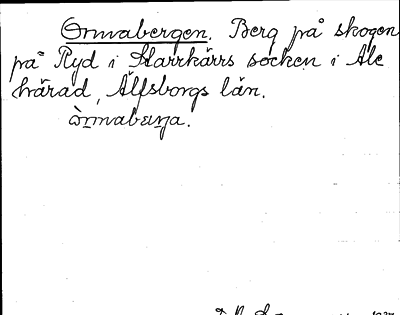 Ormabergen. Berg på skogen
på Ryd i Starrkärrs socken i Ale
härad, Älfsborgs län.